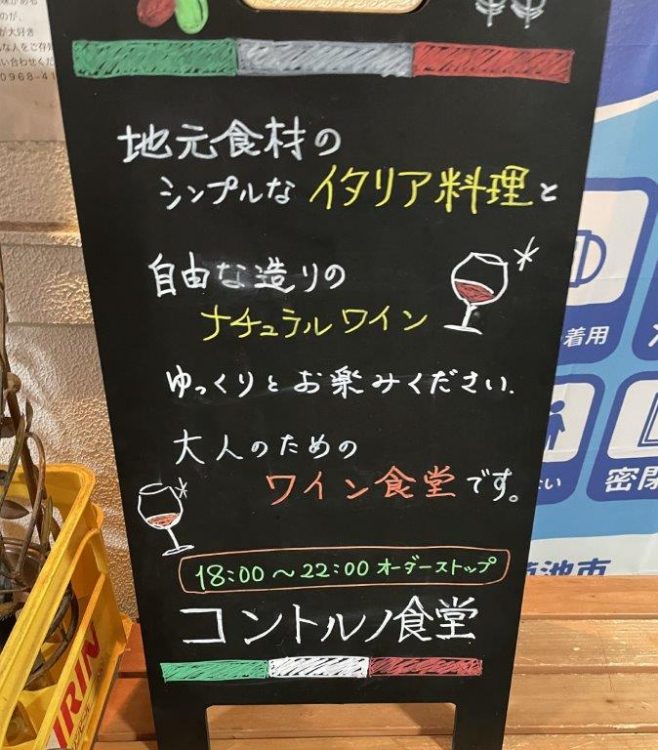 地元食材の
シンプルなイタリア料理と
自由な造りの
ナチュラルワイン
ゆっくりとお楽みください.
大人のための
ワイン食堂です。
18:00〜22:00オーダーストップ
コントルノ食堂
着用
密閉
池市
IRIN
が大好き
0968-41